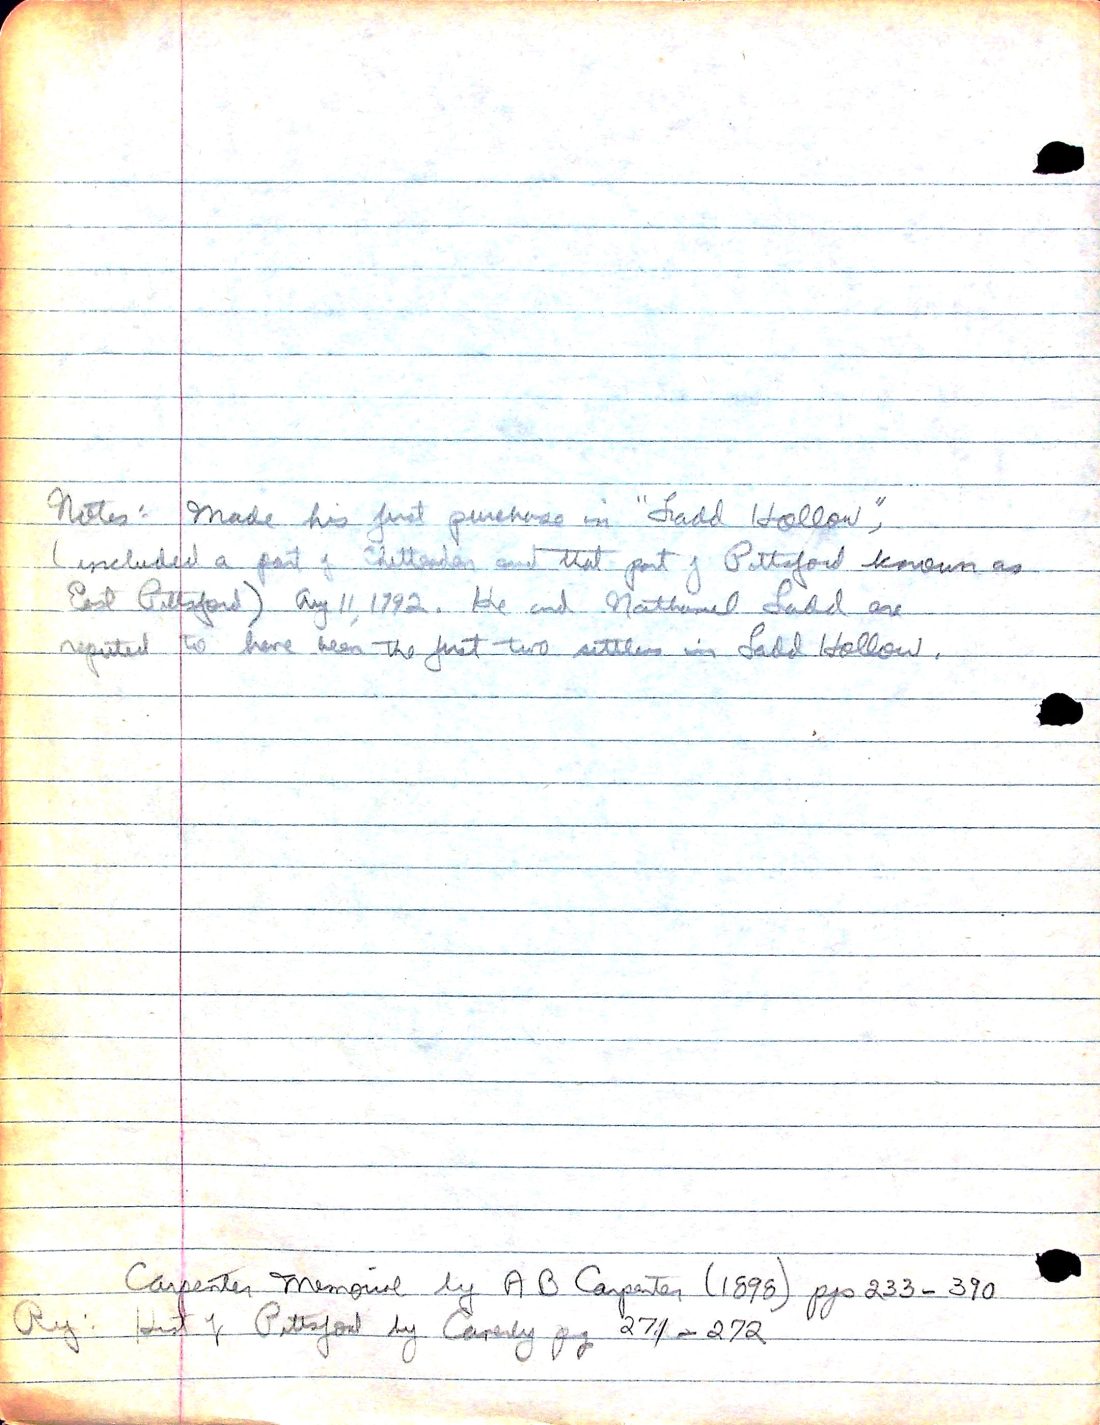 Notes: Made his first purchase in "Ladd Hollow",
(included a part of Chittenden and that part of Pittsford known as
East Pittsford) Aug 11, 1792. He and Nathaniel Ladd are
reputed to have been the first two settlers in Ladd Hollow.
Carpenter Memorial by A B Carpenter (1898) pgs 233-390
Ref: Hist of Pittsford by Caverly pg 271-272